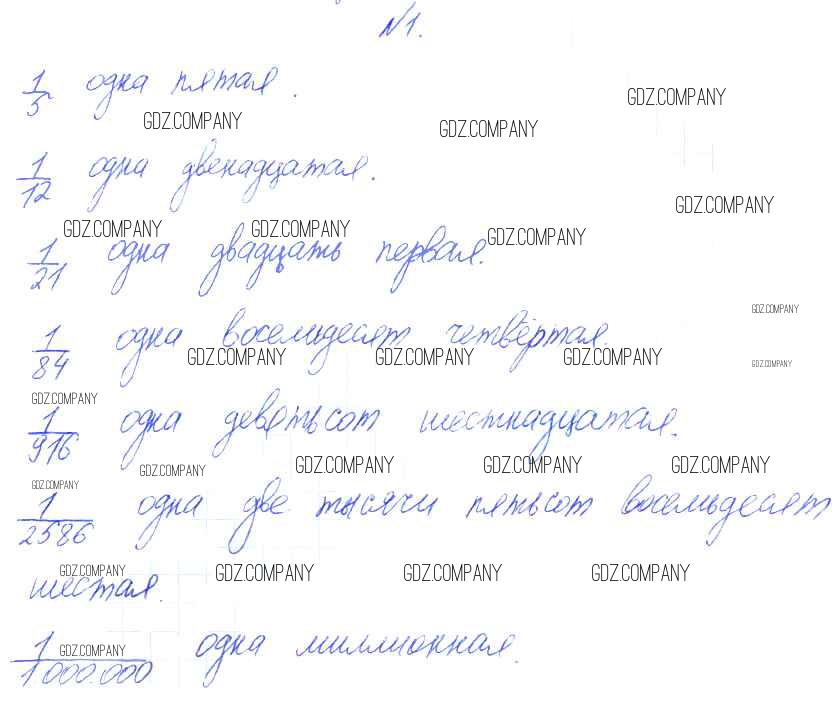 №1.
1/5 одна пятая.
GDZ.COMPANY
GDZ.COMPANY GDZ.COMPANY
1/12 одна двенадцатая.
GDZ.COMPANY
GDZ.COMPANY GDZ.COMPANY GDZ.COMPANY
1/21 одна двадцать первая.
GDZ.COMPANY
1/84 одна восемьдесят четвёртая.
GDZ.COMPANY GDZ.COMPANY GDZ.COMPANY GDZ.COMPANY
GDZ.COMPANY
1/916 одна девятьсот шестнадцатая.
GDZ.COMPANY GDZ.COMPANY GDZ.COMPANY GDZ.COMPANY
GDZ.COMPANY
1/2586 одна две тысячи пятьсот восемьдесят
GDZ.COMPANY GDZ.COMPANY GDZ.COMPANY GDZ.COMPANY
шестая.
1/1000.000 одна миллионная.
GDZ.COMPANY